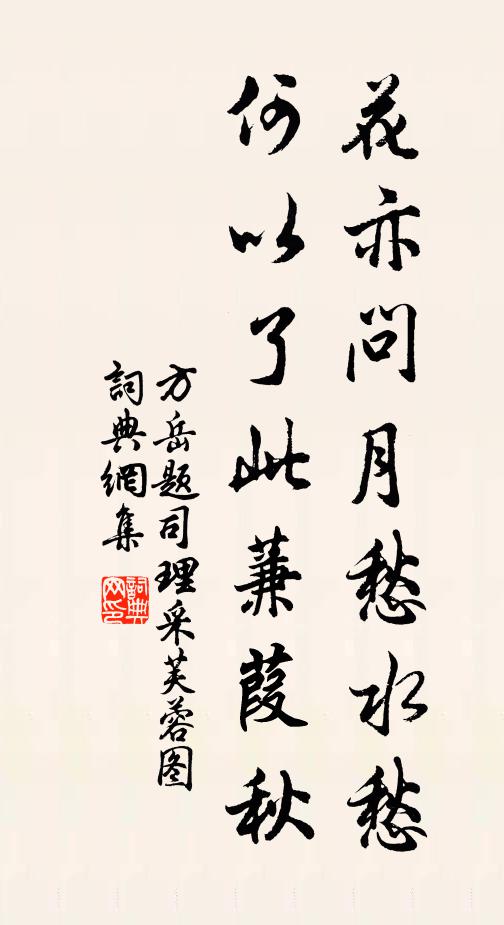 花亦問月愁水愁
何以了此蒹葭秋
方岳题司理采芙蓉图
詞典網集
詞典网印